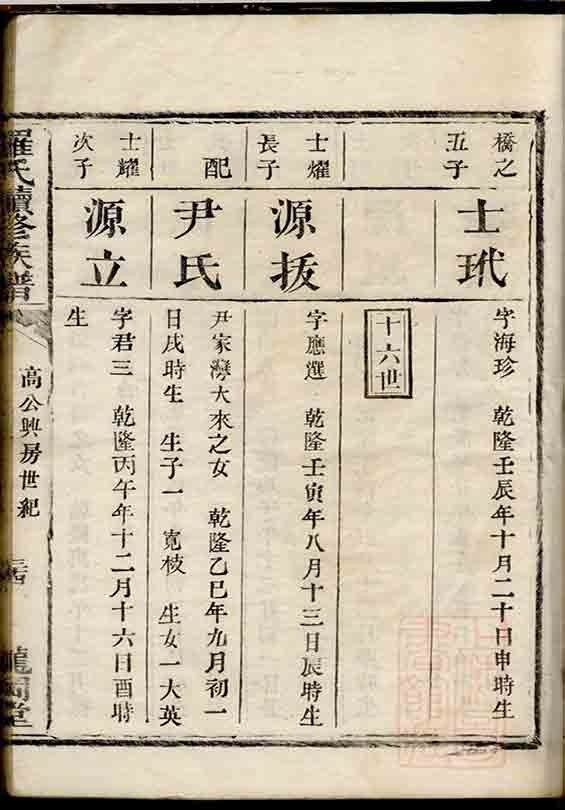 橋之
五子
士玳
字海珍 乾隆壬辰年十月二十日申時生
十六世
士燿
長子
源扳
字應選 乾隆壬寅年八月十三日辰時生
配
尹氏
尹家灣大來之女 乾隆乙巳年九月初一
日戌時生 生子一 寬枝 生女一大英
士耀
次子
源立
字君三 乾隆丙午年十二月十六日酉時
生
羅氏續修族譜
高公興房世紀
龍岡堂